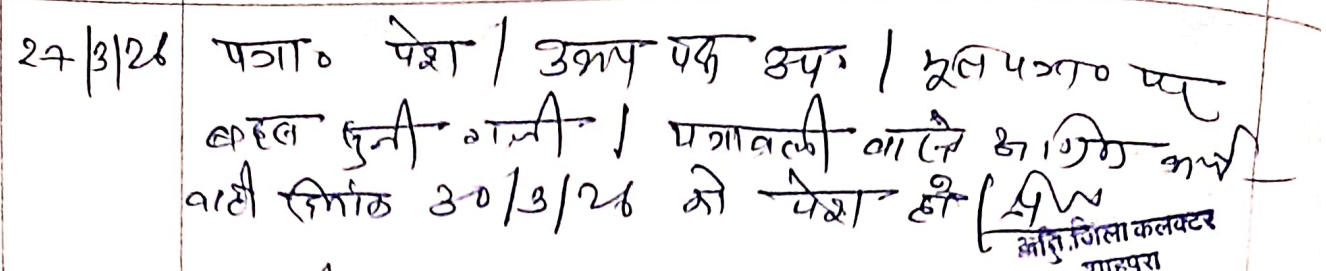 27/3/26 पत्रा० पेश | उभय पक्ष उप. | मूल पत्रा० पर
बहस सुनी गयी | पत्रावली वास्ते अग्रिम कार्य
वाही दिनांक 30/3/26 को पेश हो |
अति. जिला कलक्टर
शाहपुरा